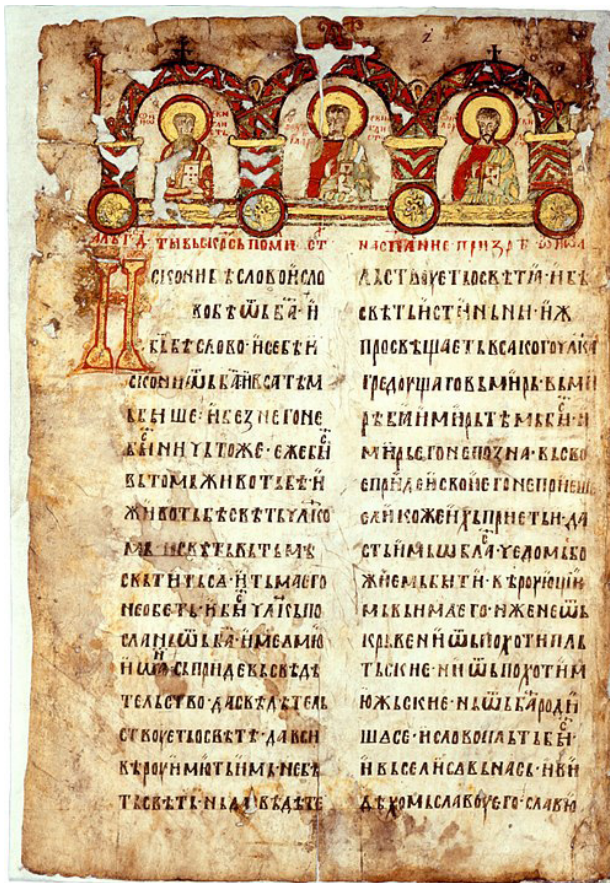 СКОНИ БѢ СЛОВО И СЛО
ВО БѢ Ѿ Б҃А · И
Б҃Ь БѢ СЛОВО · И СЕ БѢ И
СКОНИ Ѿ Б҃А И ВСА ТѢМ
Ь БЫШЕ · И БЕЗ НЕГО НЕ
БЫ НИЧЬТОЖЕ · ЕЖЕ БЫ
ВЬ ТОМЬ ЖИВОТЬ БѢ · И
ЖИВОТЬ БѢ СВѢТЬ ЧЛ҃КО
МЬ И СВѢТЬ ВЬ ТЬМѢ
СВЬТИТЬСА · И ТЬМА ЕГО
НЕ ОБЕТЬ · И БЫ ЧЛ҃КЬ ПО
СЛАНЬ Ѿ Б҃А · ИМЕ ѤМОУ
ИѠАНЬ СЬ ПРИДЕ ВЬ СВѢДѢ
ТЕЛЬСТВО · ДА СВѢДѢТЕЛЬ
СТВОУЕТЬ О СВѢТѢ · ДА ВСИ
ВѢРОУ ИМОУТЬ ИМЬ · НЕ БѢ
ТЬ СВѢТЬ · НЬ ДА СВѢДѢТЕ
ЛЬСТВОУЕТЬ О СВѢТѢ · БѢ
СВѢТЬ ИСТИНЬНИ · ИЖЕ
ПРОСВѢЩАЕТЬ ВСАКОГО ЧЛ҃КА
ГРЕДОУЩАГО ВЬ МИРЬ · ВЬ МИ
РѢ БѢ И МИРЬ ТѢМЬ БЫ · И
МИРЬ ЕГО НЕ ПОЗНА · ВЬ СВО
Е ПРИДЕ И СВОИ ЕГО НЕ ПРИЕШЕ
ЕЛИКО ЖЕ ИХЬ ПРИЕТЬ И · ДА
СТЬ ИМЬ ѠБЛАСТЬ ЧЕДОМЬ БО
ЖИЕМЬ БЫТИ · ВѢРОУЮЩИИ
МЬ ВЬ ИМЕ ЕГО · ИЖЕ НЕ Ѿ
КРЬВЕ НИ Ѿ ПОХОТИ ПЛЬ
ТЬСКИЕ · НИ Ѿ ПОХОТИ М
ОУЖЬСКИЕ · НЬ Ѿ Б҃А РОДИ
ШАСЕ · И СЛОВО ПЛЬТЬ БЫ ·
И ВЬСЕЛИСА ВЬ НАСЬ · И ВИ
ДѢХОМЬ СЛАВОУ ЕГО · СЛАВОУ